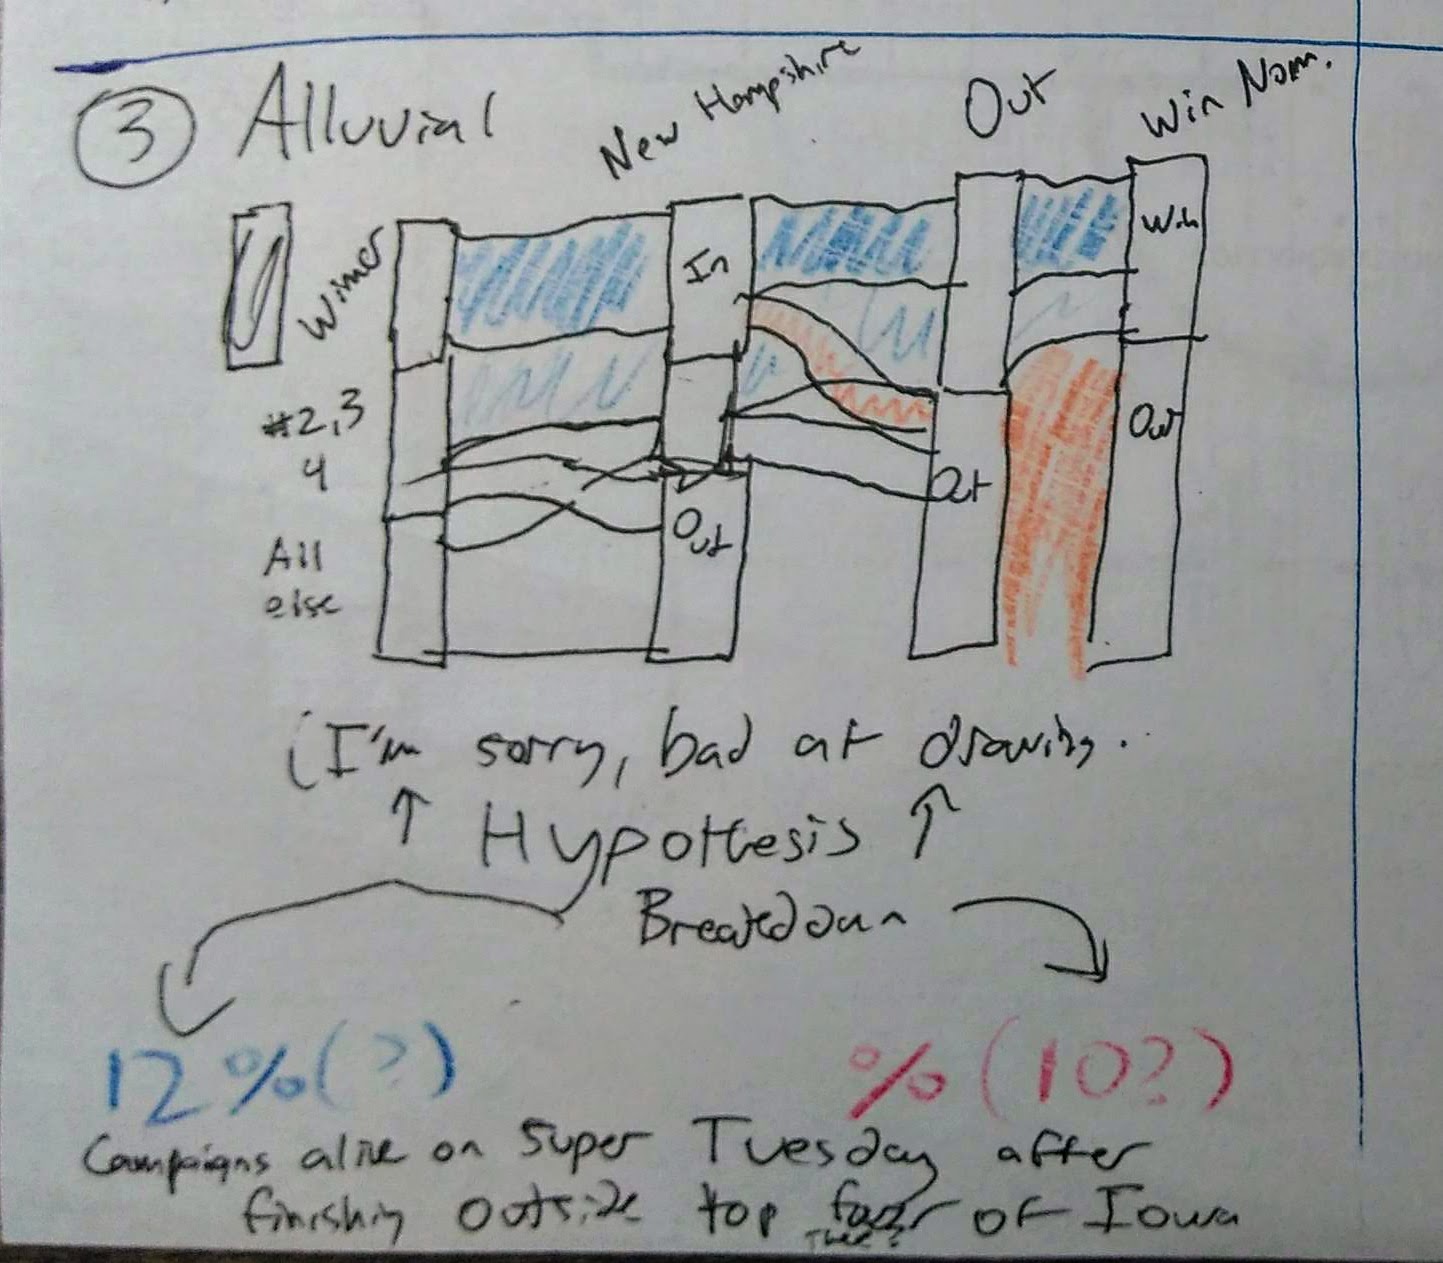 3 Alluvial
New Hampshire
Out
Win Nom.
Winner
In
Win
#2,3
4
Out
Out
Out
All
else
(I'm sorry, bad at drawing.
↑ Hypothesis ↑
Breakdown
12%(?)
%(10?)
Campaigns alive on Super Tuesday after
finishing outside top four of Iowa
Three?